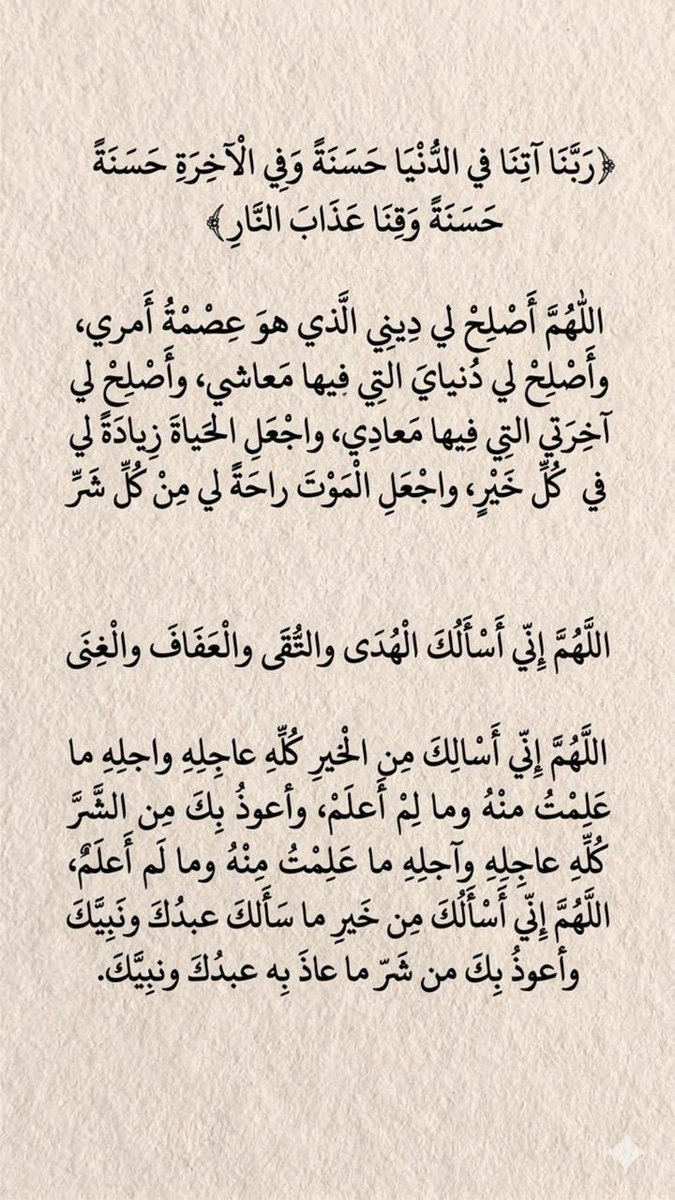 ﴿رَبَّنَا آتِنَا في الدُّنْيَا حَسَنَةً وَفِي الْآخِرَةِ حَسَنَةً
حَسَنَةً وَقِنَا عَذَابَ النَّارِ﴾
اللَّهُمَّ أَصْلِحْ لي دِينِي الَّذي هوَ عِصْمْةُ أَمري،
وأَصْلِحْ لي دُنيايَ التِي فِيها مَعاشي، وأَصْلِحْ لي
آخِرَتي التِي فِيها مَعادِي، واجْعَلِ الحَياةَ زِيادَةً لي
في كُلِّ خَيْرٍ، واجْعَلِ الْمَوْتَ راحَةً لي مِنْ كُلِّ شَرٍّ
اللَّهُمَّ إِنّي أَسْأَلُكَ الْهُدَى والتُّقَى والْعَفَافَ والْغِنَى
اللَّهُمَّ إِنّي أَسْالِكَ مِنِ الْخيرِ كُلِّهِ عاجِلِهِ واجلِهِ ما
عَلِمْتُ منْهُ وما لِمْ أَعلَمْ، وأعوذُ بِكَ مِن الشَّرَّ
كُلِّهِ عاجِلِهِ وآجلِهِ ما عَلِمْتُ مِنْهُ وما لَم أَعلَمٌ،
اللَّهُمَّ إِنّي أَسْأَلُكَ مِن خَيرِ ما سَأَلكَ عبدُكَ ونَبِيَّكَ
وأعوذُ بِكَ من شَرّ ما عاذَ بِه عبدُكَ ونبِيَّكَ.